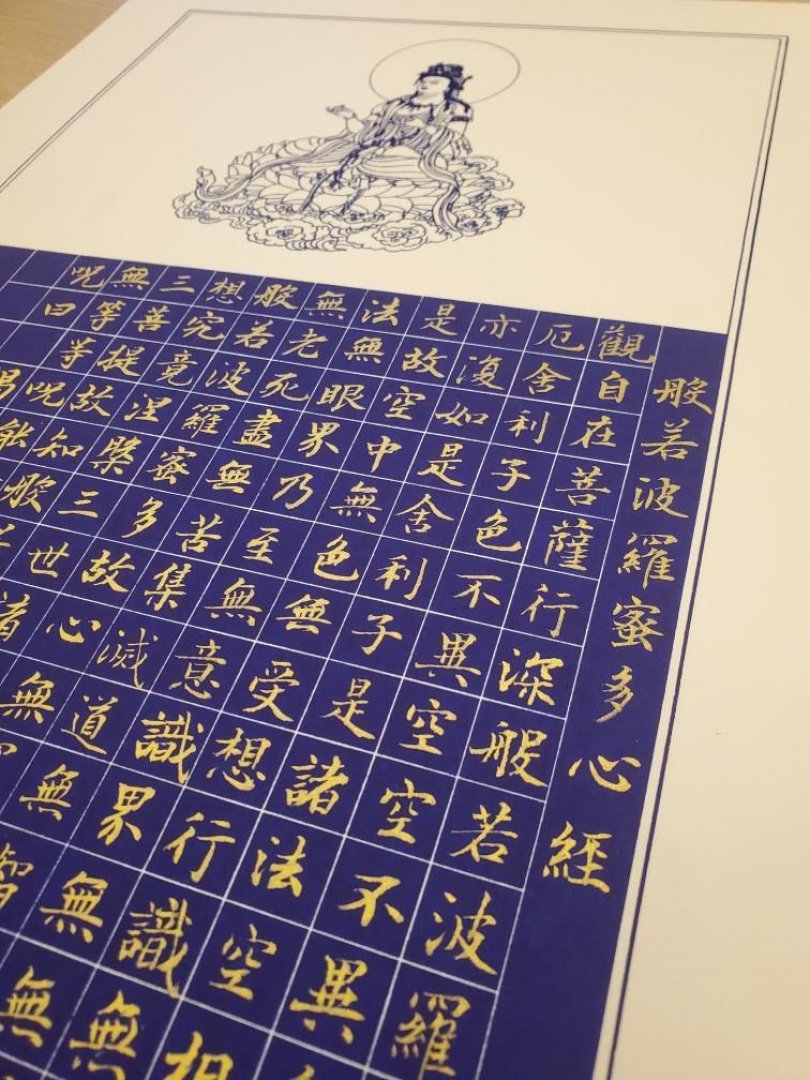 般若波羅蜜多心經
觀自在菩薩行深般若波羅
厄舍利子色不異空空不異
亦復如是舍利子是諸法空相
是故空中無色無受想行識無
法無眼界乃至無意識界無無
無老死盡無苦集滅道無智
般若波羅蜜多故心無
想究竟涅槃三世諸
三善提故知般
無等等呪能
呪曰